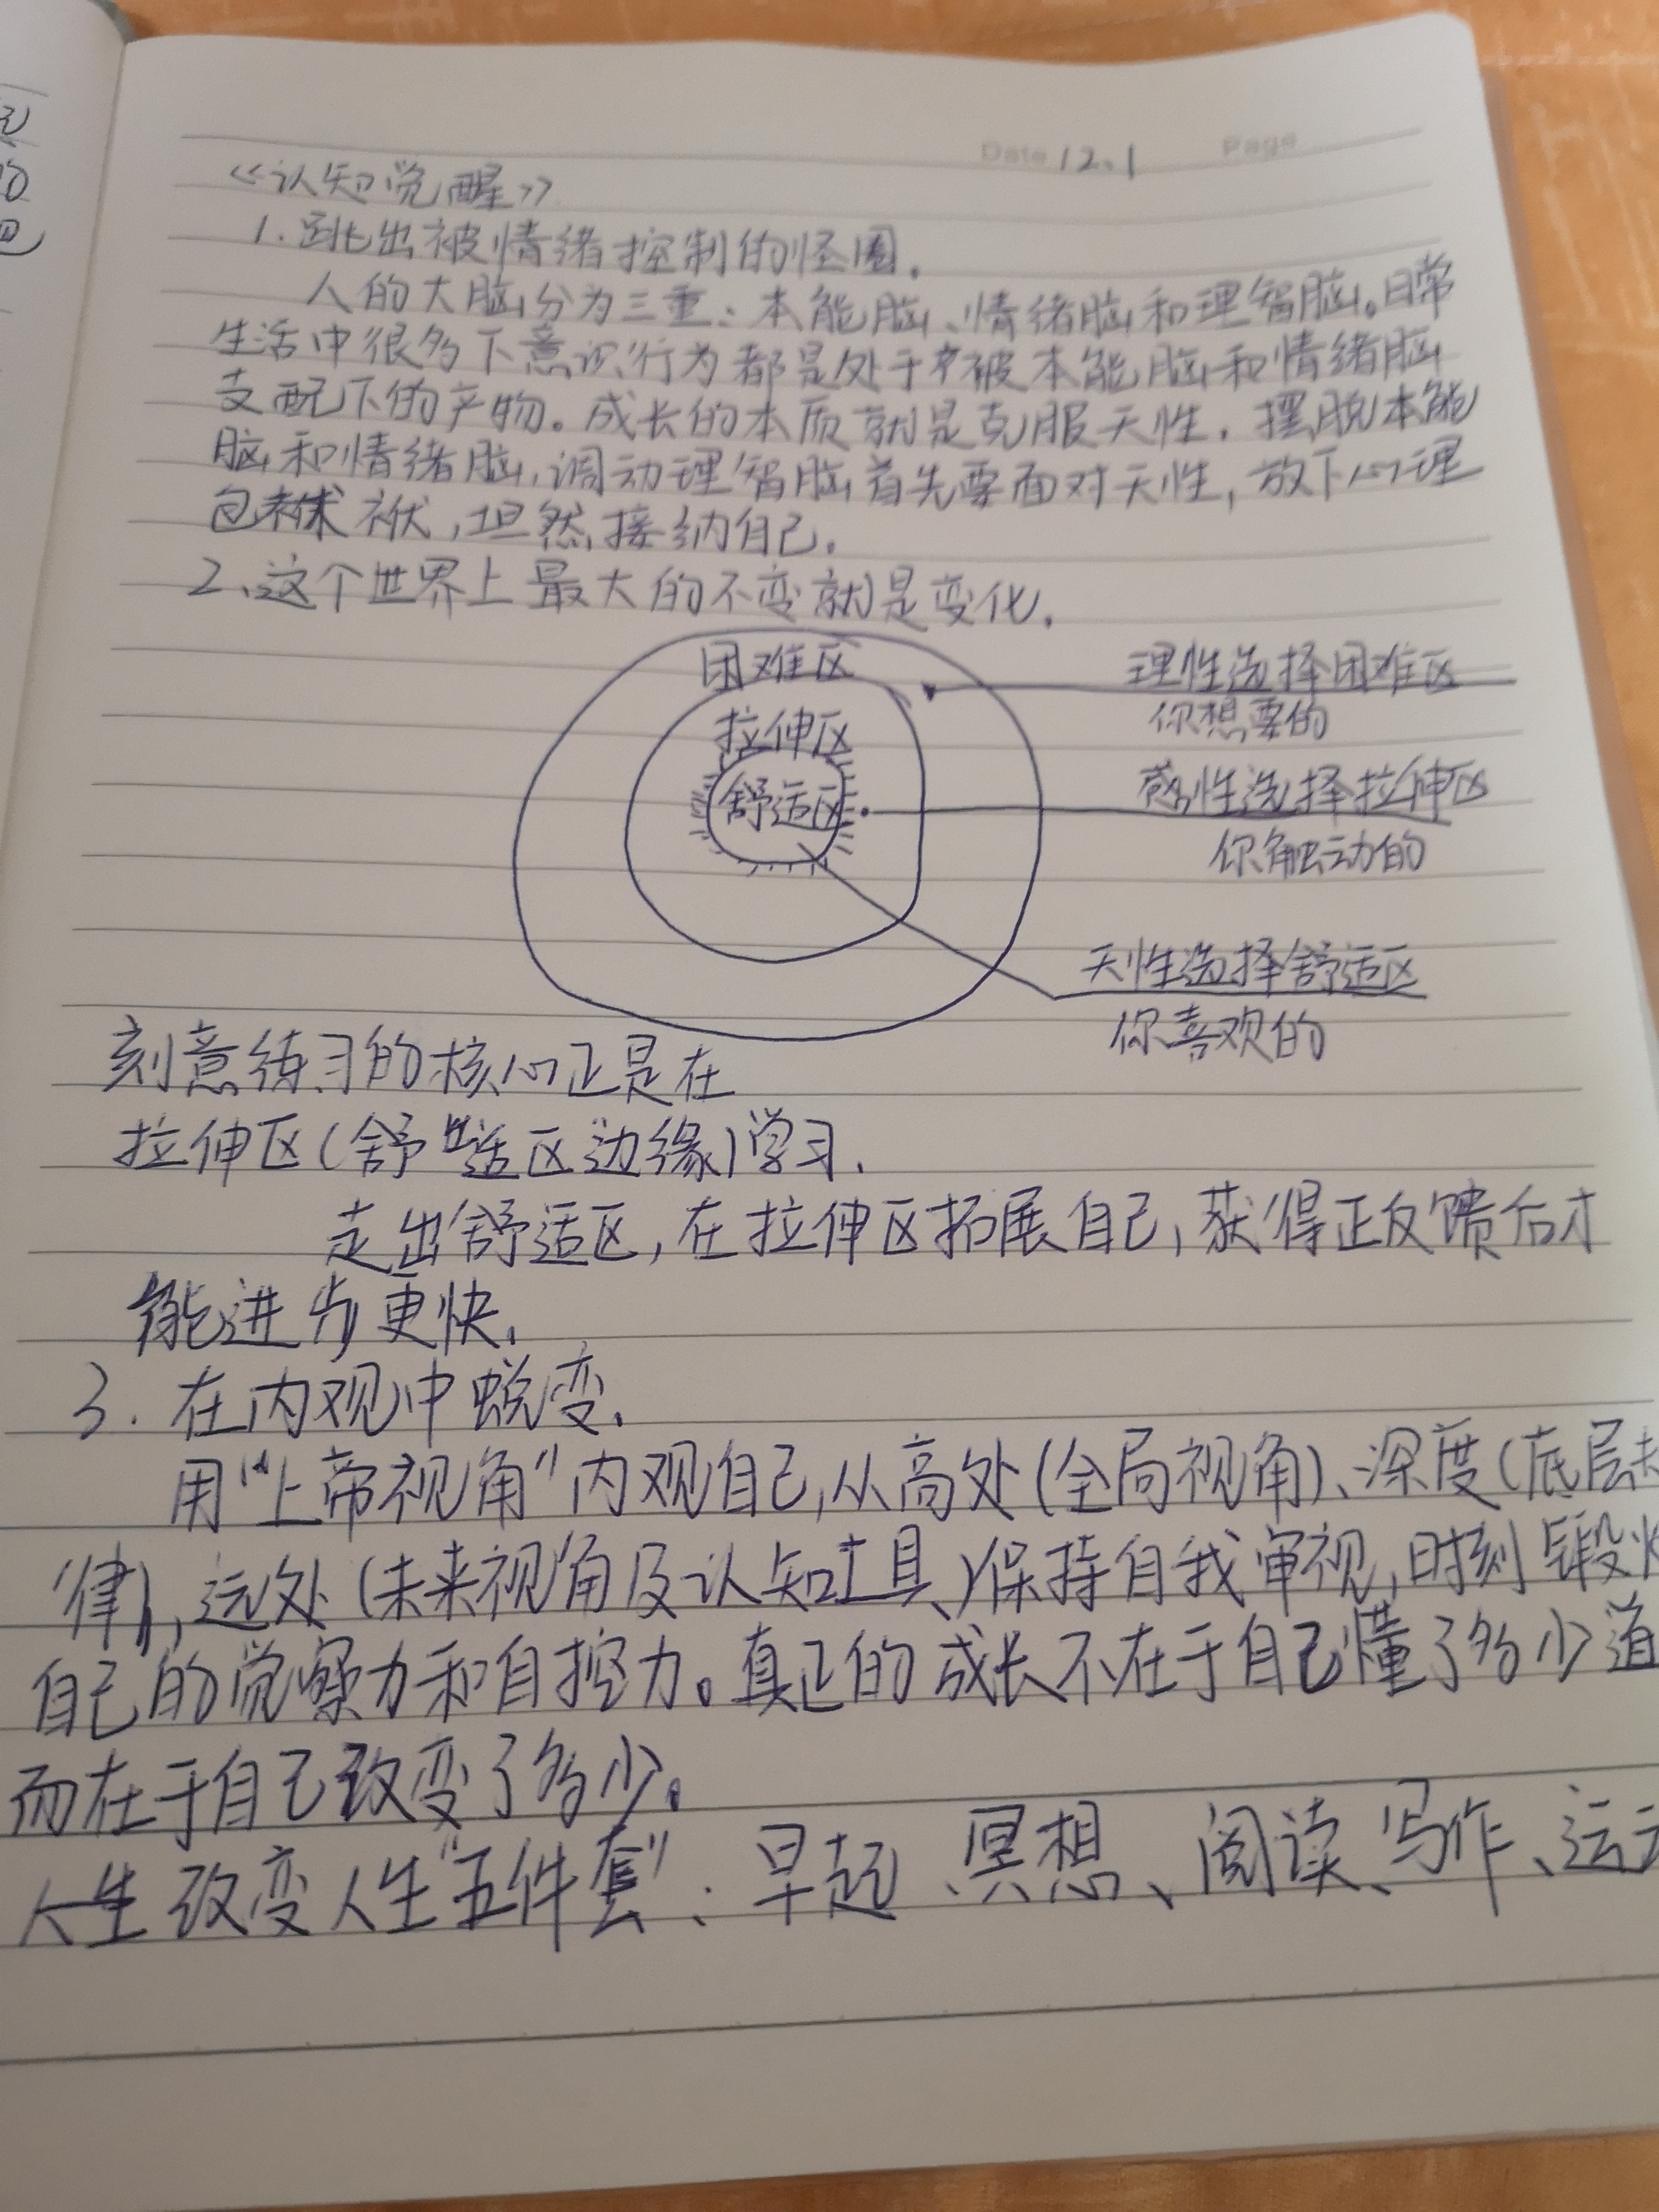 Date 12.1 Page
《认知觉醒》
1.跳出被情绪控制的怪圈.
人的大脑分为三重:本能脑、情绪脑和理智脑。日常
生活中很多下意识行为都是处于被本能脑和情绪脑
支配下的产物。成长的本质就是克服天性,摆脱本能
脑和情绪脑,调动理智脑首先要面对天性,放下心理
包袱,坦然接纳自己.
2、这个世界上最大的不变就是变化.
困难区
拉伸区
舒适区
理性选择困难区
你想要的
感性选择拉伸区
你触动的
天性选择舒适区
你喜欢的
刻意练习的核心正是在
拉伸区(舒适区边缘)学习.
走出舒适区,在拉伸区拓展自己,获得正反馈后才
能进步更快.
3.在内观中蜕变.
用“上帝视角”内观自己,从高处(全局视角)、深度(底层
律),远处(未来视角及认知工具)保持自我审视,时刻锻
自己的觉察力和自控力。真正的成长不在于自己懂了多少道
而在于自己改变了多少。
人生改变人生“五件套”:早起、冥想、阅读、写作、运